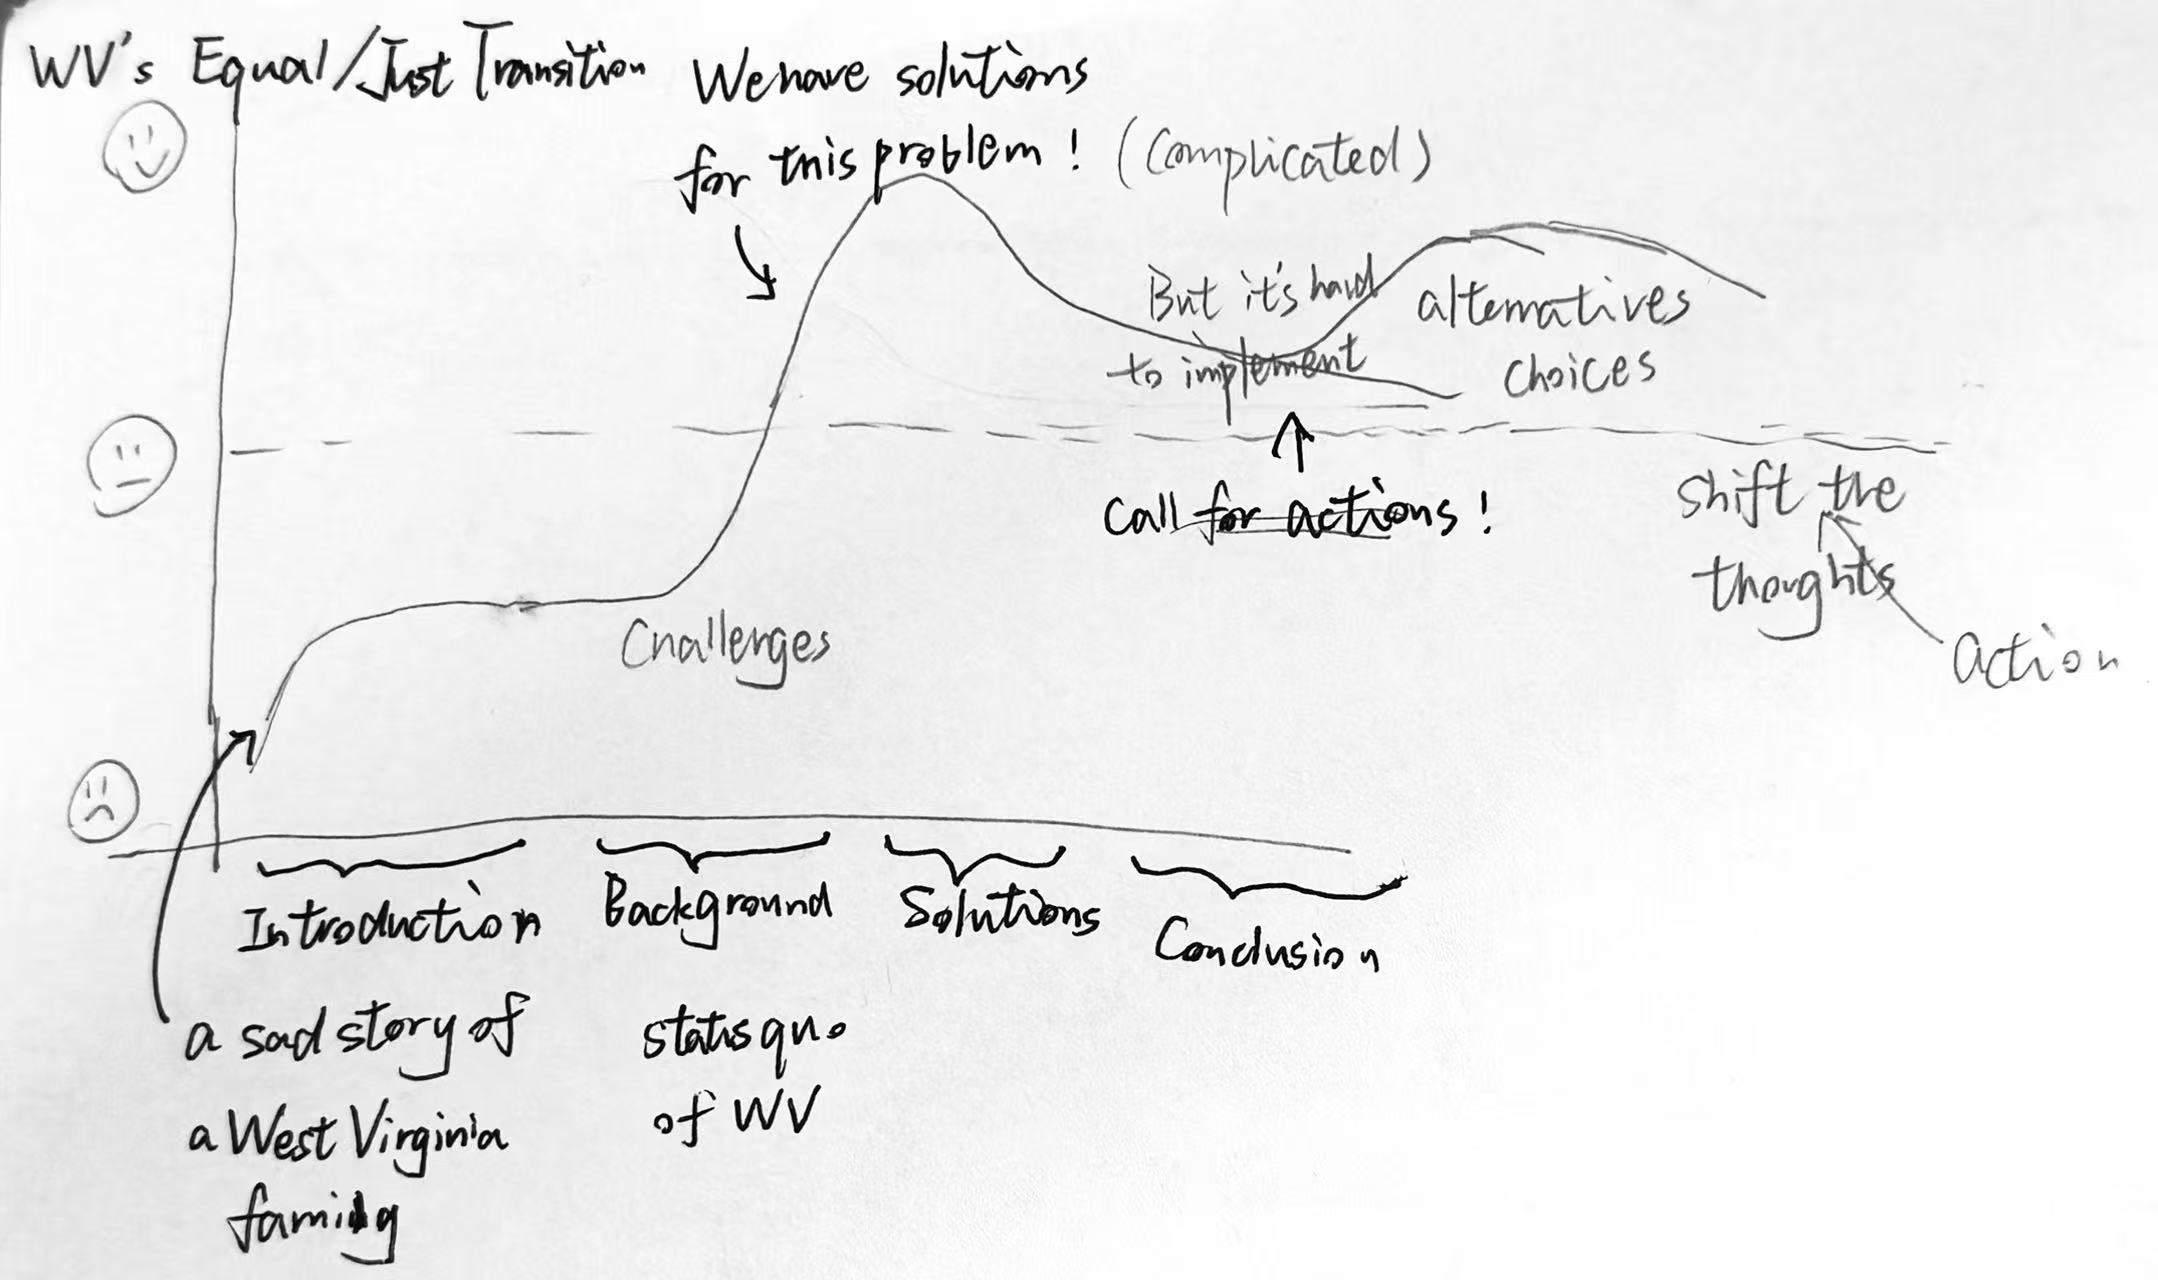 WV's Equal/Just Transition
We have solutions
for this problem! (Complicated)
But it's hard
to implement
alternatives
choices
Call for actions!
Shift the
thoughts
action
Challenges
Introduction
Background
Solutions
Conclusion
a sad story of
a West Virginia
family
status quo
of WV